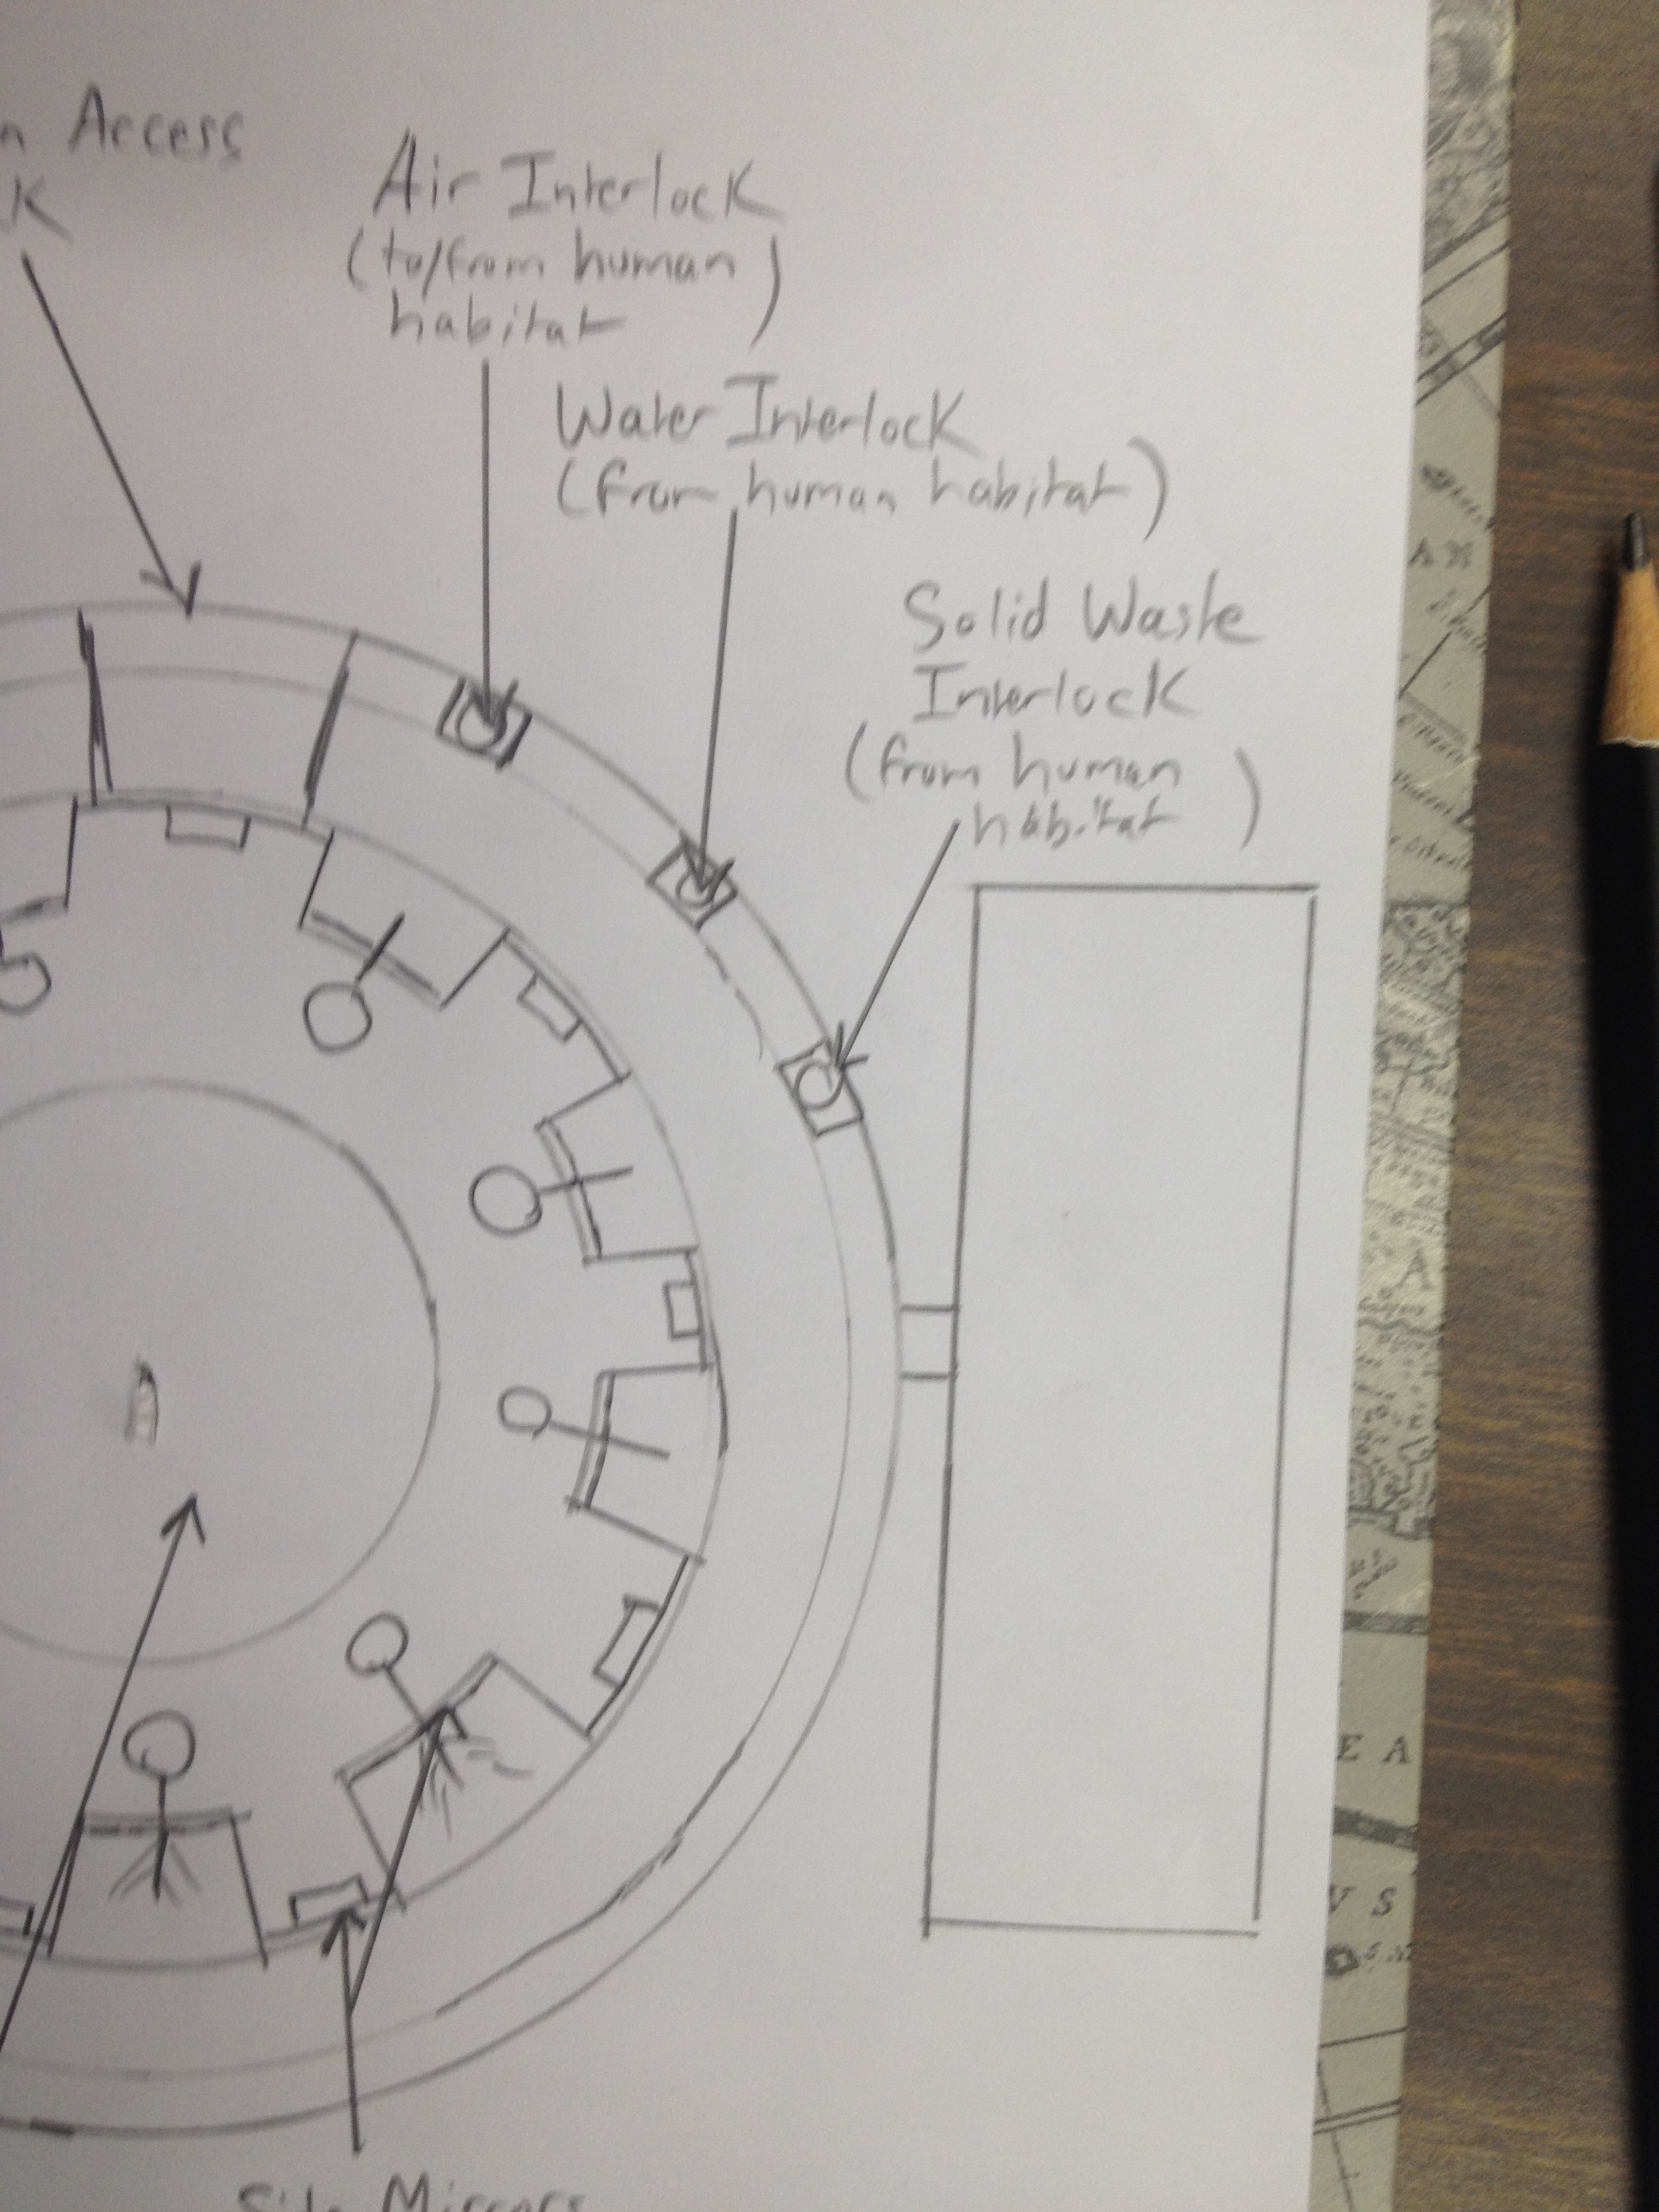 n Access
K
Air Interlock
(to/from human)
habitat
Water Interlock
(from human habitat)
Solid Waste
Interlock
(from human
habitat)
Side Mirrors
A
E A
V S